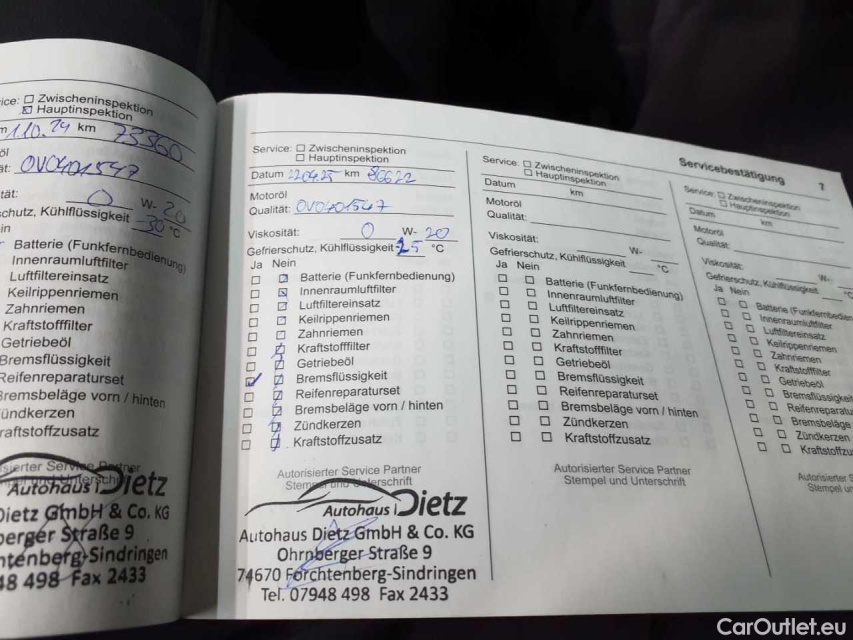 ice: ☐ Zwischeninspektion
☒ Hauptinspektion
110.24 km 73360
öl
ät: OV0401547
tät: 0 W- 20
schutz, Kühlflüssigkeit -30 °C
in
Batterie (Funkfernbedienung)
Innenraumluftfilter
Luftfiltereinsatz
Keilrippenriemen
Zahnriemen
Kraftstofffilter
Getriebeöl
Bremsflüssigkeit
Reifenreparaturset
Bremsbeläge vorn / hinten
ündkerzen
raftstoffzusatz
isierter Service Partner
Autohaus Dietz
Dietz GmbH & Co. KG
berger Straße 9
htenberg-Sindringen
48 498 Fax 2433
Service: ☐ Zwischeninspektion
☐ Hauptinspektion
Datum 120425 km 80622
Motoröl
Qualität: OV0401547
Viskosität: 0 W- 20
Gefrierschutz, Kühlflüssigkeit -25 °C
Ja Nein
Batterie (Funkfernbedienung)
Innenraumluftfilter
Luftfiltereinsatz
Keilrippenriemen
Zahnriemen
Kraftstofffilter
Getriebeöl
Bremsflüssigkeit
Reifenreparaturset
Bremsbeläge vorn / hinten
Zündkerzen
Kraftstoffzusatz
Autorisierter Service Partner
Stempel und Unterschrift
Autohaus Dietz
Autohaus Dietz GmbH & Co. KG
Ohrnberger Straße 9
74670 Forchtenberg-Sindringen
Tel. 07948 498 Fax 2433
Service: ☐ Zwischeninspektion
☐ Hauptinspektion
Datum km
Motoröl
Qualität:
Viskosität: W-
Gefrierschutz, Kühlflüssigkeit °C
Ja Nein
Batterie (Funkfernbedienung)
Innenraumluftfilter
Luftfiltereinsatz
Keilrippenriemen
Zahnriemen
Kraftstofffilter
Getriebeöl
Bremsflüssigkeit
Reifenreparaturset
Bremsbeläge vorn / hinten
Zündkerzen
Kraftstoffzusatz
Autorisierter Service Partner
Stempel und Unterschrift
Servicebestätigung 7
Service: ☐ Zwischeninspektion
☐ Hauptinspektion
Datum km
Motoröl
Qualität:
Viskosität: W-
Gefrierschutz, Kühlflüssigkeit °C
Ja Nein
Batterie (Funkfernbedien
Innenraumluftfilter
Luftfiltereinsatz
Keilrippenriemen
Zahnriemen
Kraftstofffilter
Getriebeöl
Bremsflüssigkei
Reifenreparatu
Bremsbeläge
Zündkerzen
Kraftstoffzu
Autorisierter S
Stempel un
CarOutlet.eu